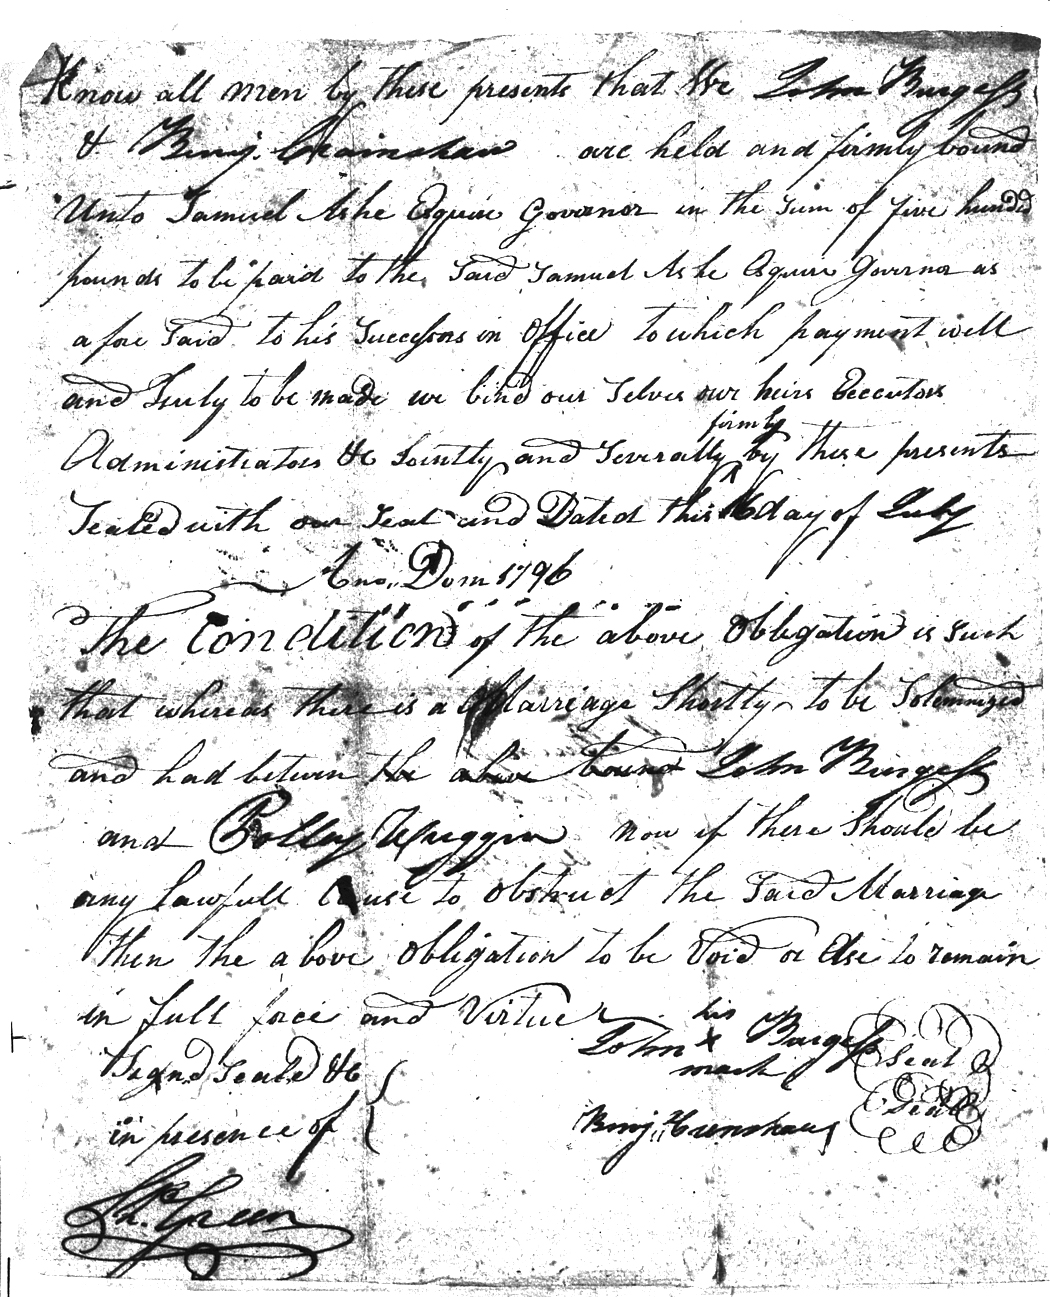 Know all men by these presents that We John Burgess
& Benj. Crainshaw are held and firmly bound
Unto Samuel Ashe Esquire Governor in the Sum of five hundd
pounds to be paid to the Said Samuel Ashe Esquire Governor as
a fore Said to his Successors in Office to which payment well
and Truly to be made we bind our Selves our heirs Executors
firmly
Administrators &c Jointly and Severally ^ by these presents
Sealed with our Seal and Dated this 16 day of July
Ano,, Dom 1796
The Condition of the above Obligation is Such
that whereas there is a Marriage Shortly to be Solemnized
and had between the above bound John Burgess
and Polly now if there Should be
any lawfull Cause to Obstruct the Said Marriage
then the above Obligation to be Void or Else to remain
in full force and Virtue
his
John x Burgess Seal
mark
Signd Seald &c
in presence of
Benj,, Crenshaw Seal
Sh. Green